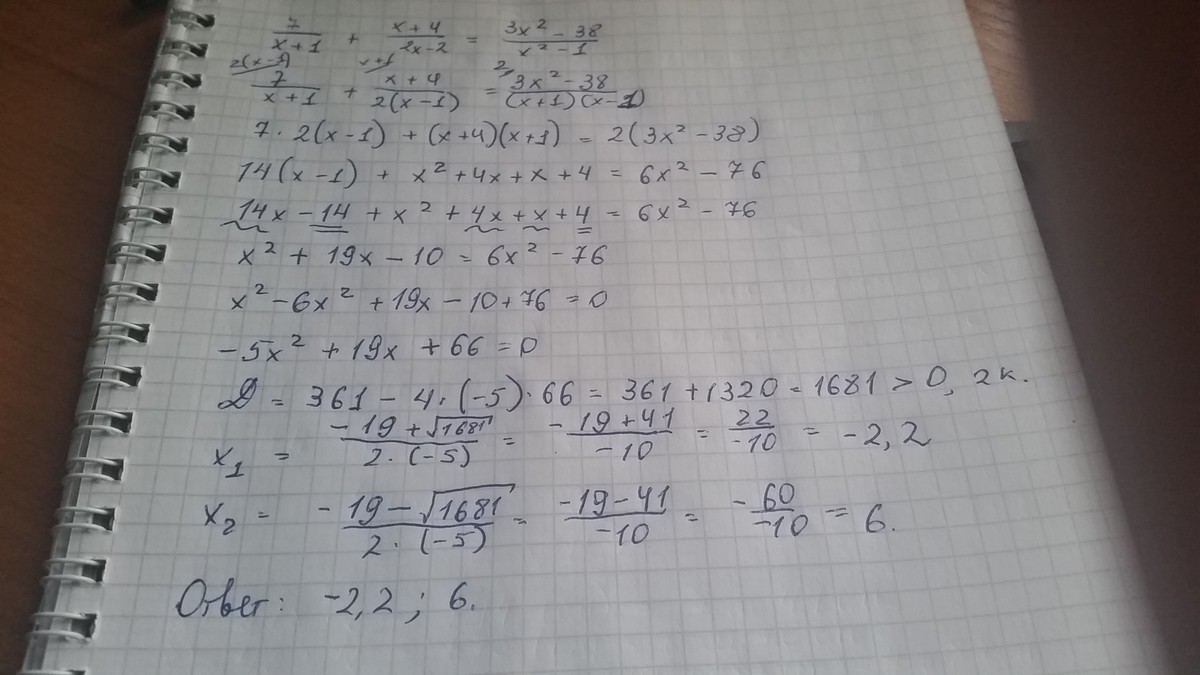 7/(x+1) + (x+4)/(2x-2) = (3x² - 38)/(x² - 1)
2(x-1) x+1 2
7/(x+1) + (x+4)/(2(x-1)) = (3x² - 38)/((x+1)(x-1))
7·2(x-1) + (x+4)(x+1) = 2(3x² - 38)
14(x-1) + x² + 4x + x + 4 = 6x² - 76
14x - 14 + x² + 4x + x + 4 = 6x² - 76
x² + 19x - 10 = 6x² - 76
x² - 6x² + 19x - 10 + 76 = 0
-5x² + 19x + 66 = 0
D = 361 - 4·(-5)·66 = 361 + 1320 = 1681 > 0, 2 к.
x₁ = (-19 + √1681)/(2·(-5)) = (-19 + 41)/(-10) = 22/(-10) = -2,2
x₂ = (-19 - √1681)/(2·(-5)) = (-19 - 41)/(-10) = (-60)/(-10) = 6.
Ответ: -2,2; 6.